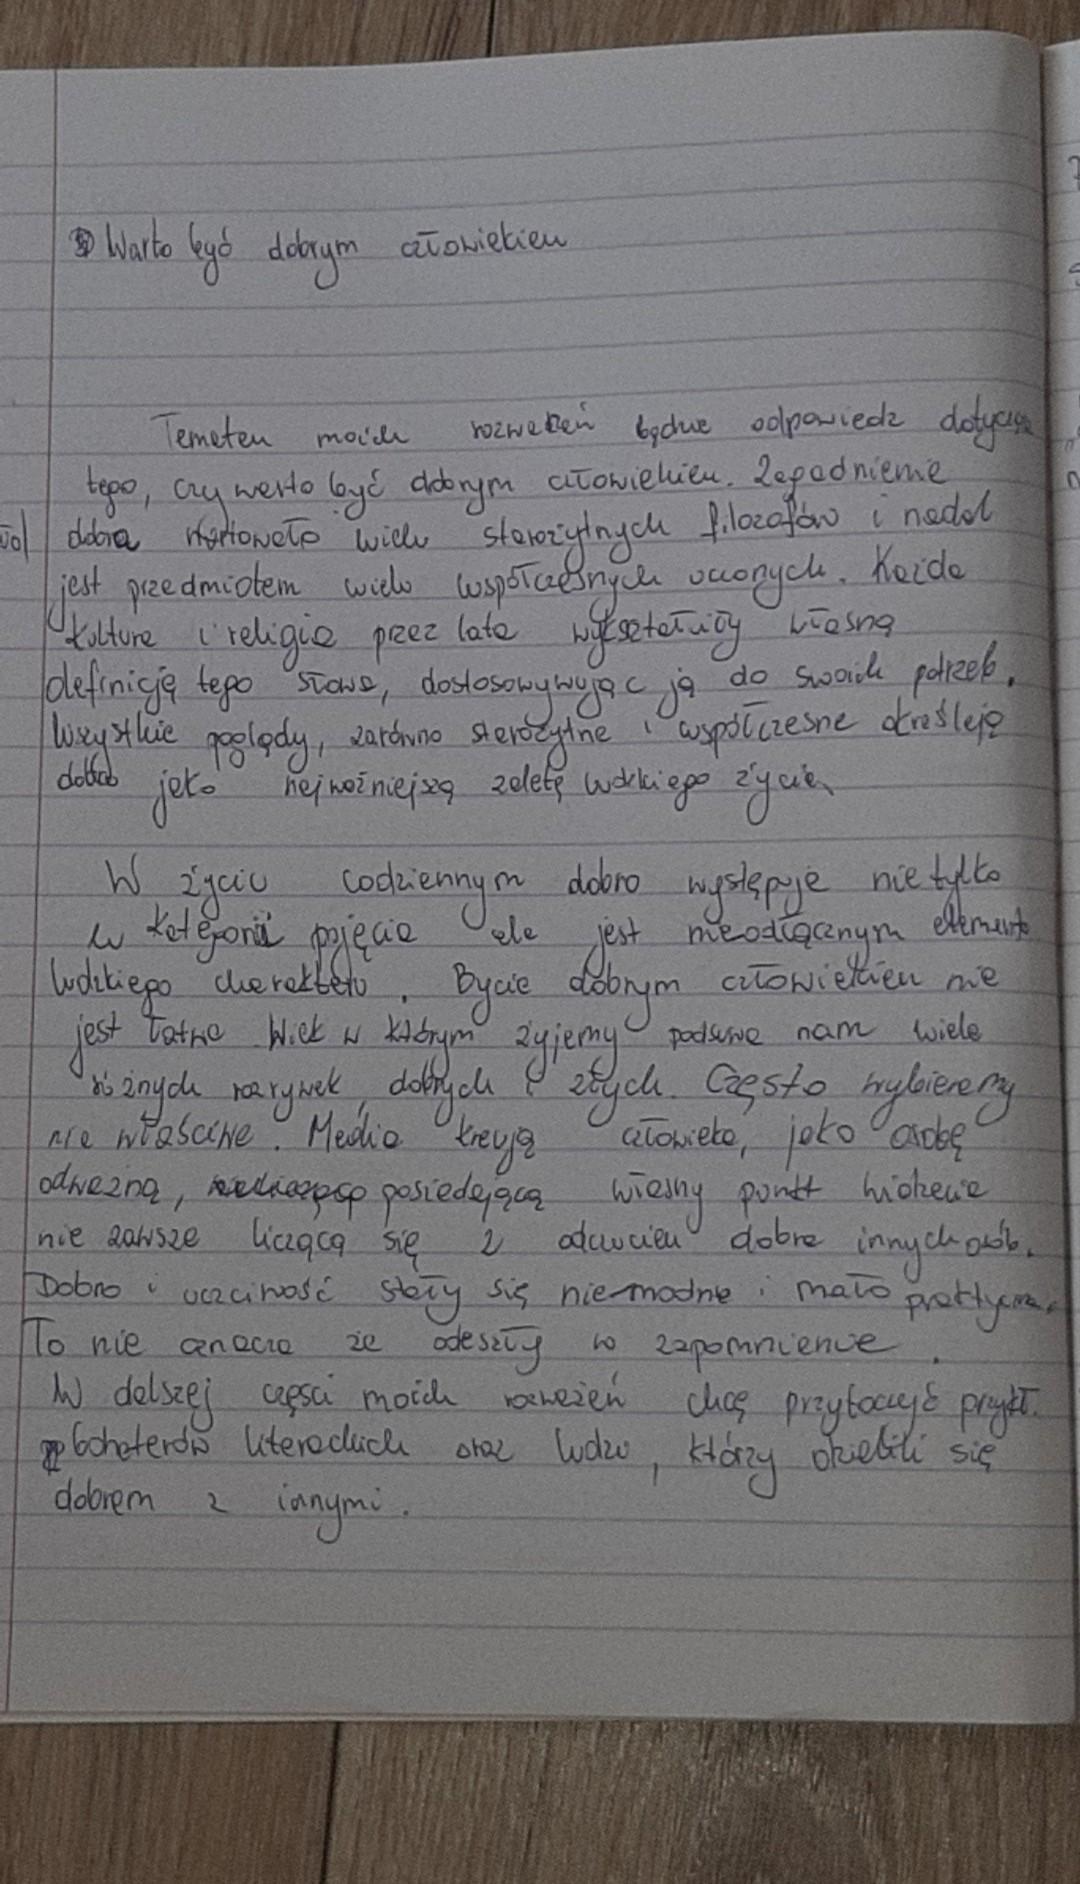 Warto być dobrym człowiekiem
Tematem moich rozważań będzie odpowiedź dotycząca
tego, czy warto być dobrym człowiekiem. Zagadnienie
dobra nurtowało wielu starożytnych filozofów i nadal
jest przedmiotem wielu współczesnych uczonych. Każda
kultura i religia przez lata wykształciły własną
definicję tego słowa, dostosowywując ją do swoich potrzeb.
Wszystkie poglądy, zarówno starożytne i współczesne określają
dobro jako najważniejszą zaletę ludzkiego życia
W życiu codziennym dobro występuje nie tylko
w kategorii pojęcia ale jest nieodłącznym elementem
ludzkiego charakteru. Bycie dobrym człowiekiem nie
jest łatwe Wiek w którym żyjemy podsuwa nam wiele
różnych rozrywek, dobrych i złych. Często wybieramy
nie właściwe. Media kreują człowieka, jako osobę
odważną, posiadającą własny punkt widzenia
nie zawsze liczącą się z odczuciem dobra innych osób.
Dobro i uczciwość stały się niemodne i mało praktyczne.
To nie oznacza że odeszły w zapomnienie.
W dalszej części moich rozważań chcę przytoczyć przykł.
bohaterów literackich oraz ludzi, którzy dzielili się
dobrem z innymi.